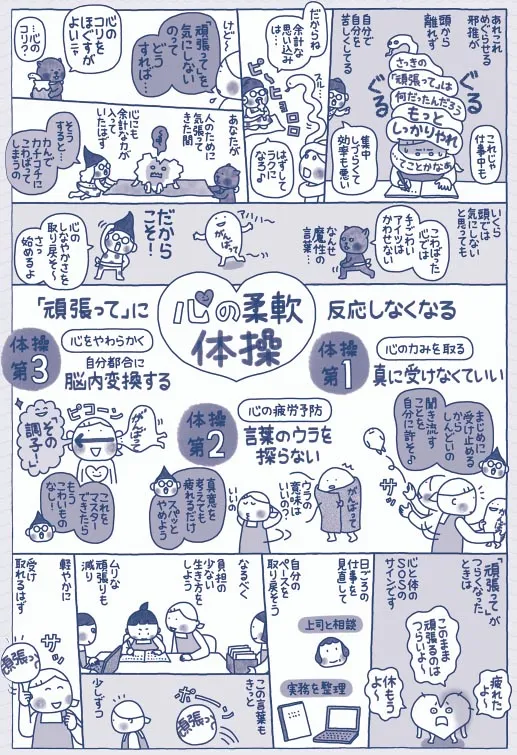 あれこれ
めぐらせる
邪推が
頭から
離れず
自分で
自分を
苦しくしてる
ぐる
ぐる
さっきの
「頑張って」は
何だったんだろう
もっと
しっかりやれ
ってことかなあ
これじゃ
仕事中も
集中
しづらくて
効率も悪い
だからね
余計な
思い込み
は…
スル…
ピ〜ヒョロロ
はずして
ラクに
なる♪
けど〜
「頑張って」を
気にしない
のって
どう
すれば…
心の
コリを
ほぐすが
よい〒
…心の
コリ?
あなたが
人のために
気張って
きた間
心にも
余計な力が
入って
いたはず
そう
すると…
力んで
カチコチに
こわばって
しまうの
いくら
頭では
気にしない
と思っても
こわばった
心では
手ごわい
アイツは
かわせない
なんせ
魔性の
言葉…
アハハ〜
がんばって
だから
こそ!
心の
しなやかさを
取り戻そ〜
さっ
始めるよ
「頑張って」に
心の柔軟
体操
反応しなくなる
体操
第1
心の力みを取る
真に受けなくていい
まじめに
受け止める
から
しんどいの
聞き流す
ことを
自分に許そ♪
サッ
体操
第2
心の疲労予防
言葉のウラを
探らない
がんばって
ウラの
意味は
いいの?
いいの
真意を
考えても
疲れるだけ
スパッと
やめよう
体操
第3
心をやわらかく
自分都合に
脳内変換する
がんばって
ピコーン
その
調子〜♪
これを
マスター
できたら
もう
こわいもの
なし!
「頑張って」が
つらくなった
ときは
心と体の
SOSの
サインです
このまま
頑張るのは
つらいよ〜
疲れた
よ〜
休もう
よ〜
日ごろの
仕事を
見直して
自分の
ペースを
取り戻そう
上司と相談
実務を整理
なるべく
負担の
少ない
生き方を
しよう
ムリな
頑張りも
減り
この言葉も
きっと
ポーン
頑張って
少しずつ
軽やかに
受け
取れるはず
サッ
頑張って